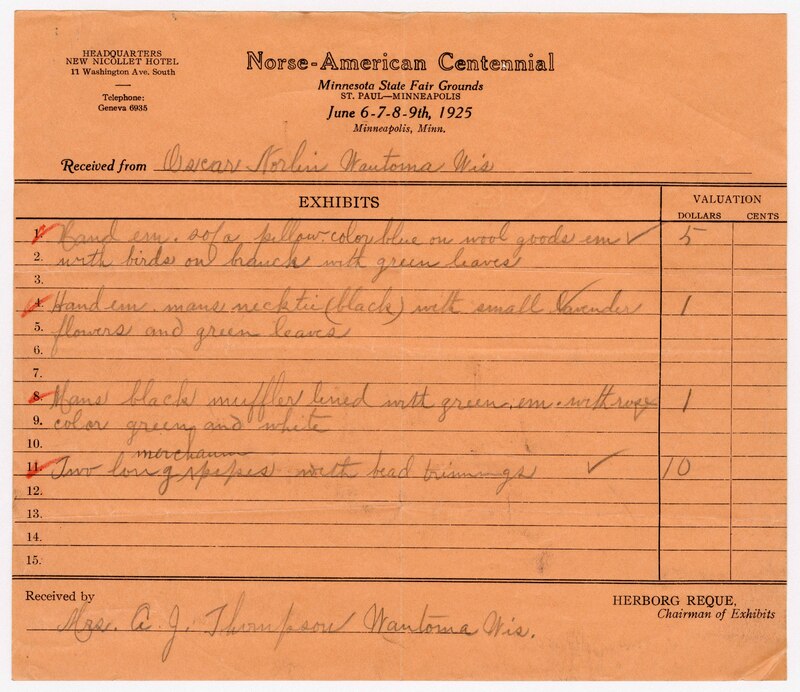 HEADQUARTERS
NEW NICOLLET HOTEL
11 Washington Ave. South
Telephone:
Geneva 6935
Norse-American Centennial
Minnesota State Fair Grounds
ST. PAUL—MINNEAPOLIS
June 6-7-8-9th, 1925
Minneapolis, Minn.
Received from Oscar Norlin Wautoma Wis
EXHIBITS
VALUATION
DOLLARS CENTS
1. Hand em. sofa pillow-color blue on wool goods em ✓ 5
2. with birds on branch with green leaves
3.
4. Hand em. mans necktie (black) with small lavender 1
5. flowers and green leaves
6.
7.
8. Mans black muffler lined with green. em. with rose 1
9. color green and white
10.
11. Two long pipes with bead trimmings ✓ 10
12.
13.
14.
15.
Received by
Mrs. A. J. Thompson Wautoma Wis.
HERBORG REQUE,
Chairman of Exhibits